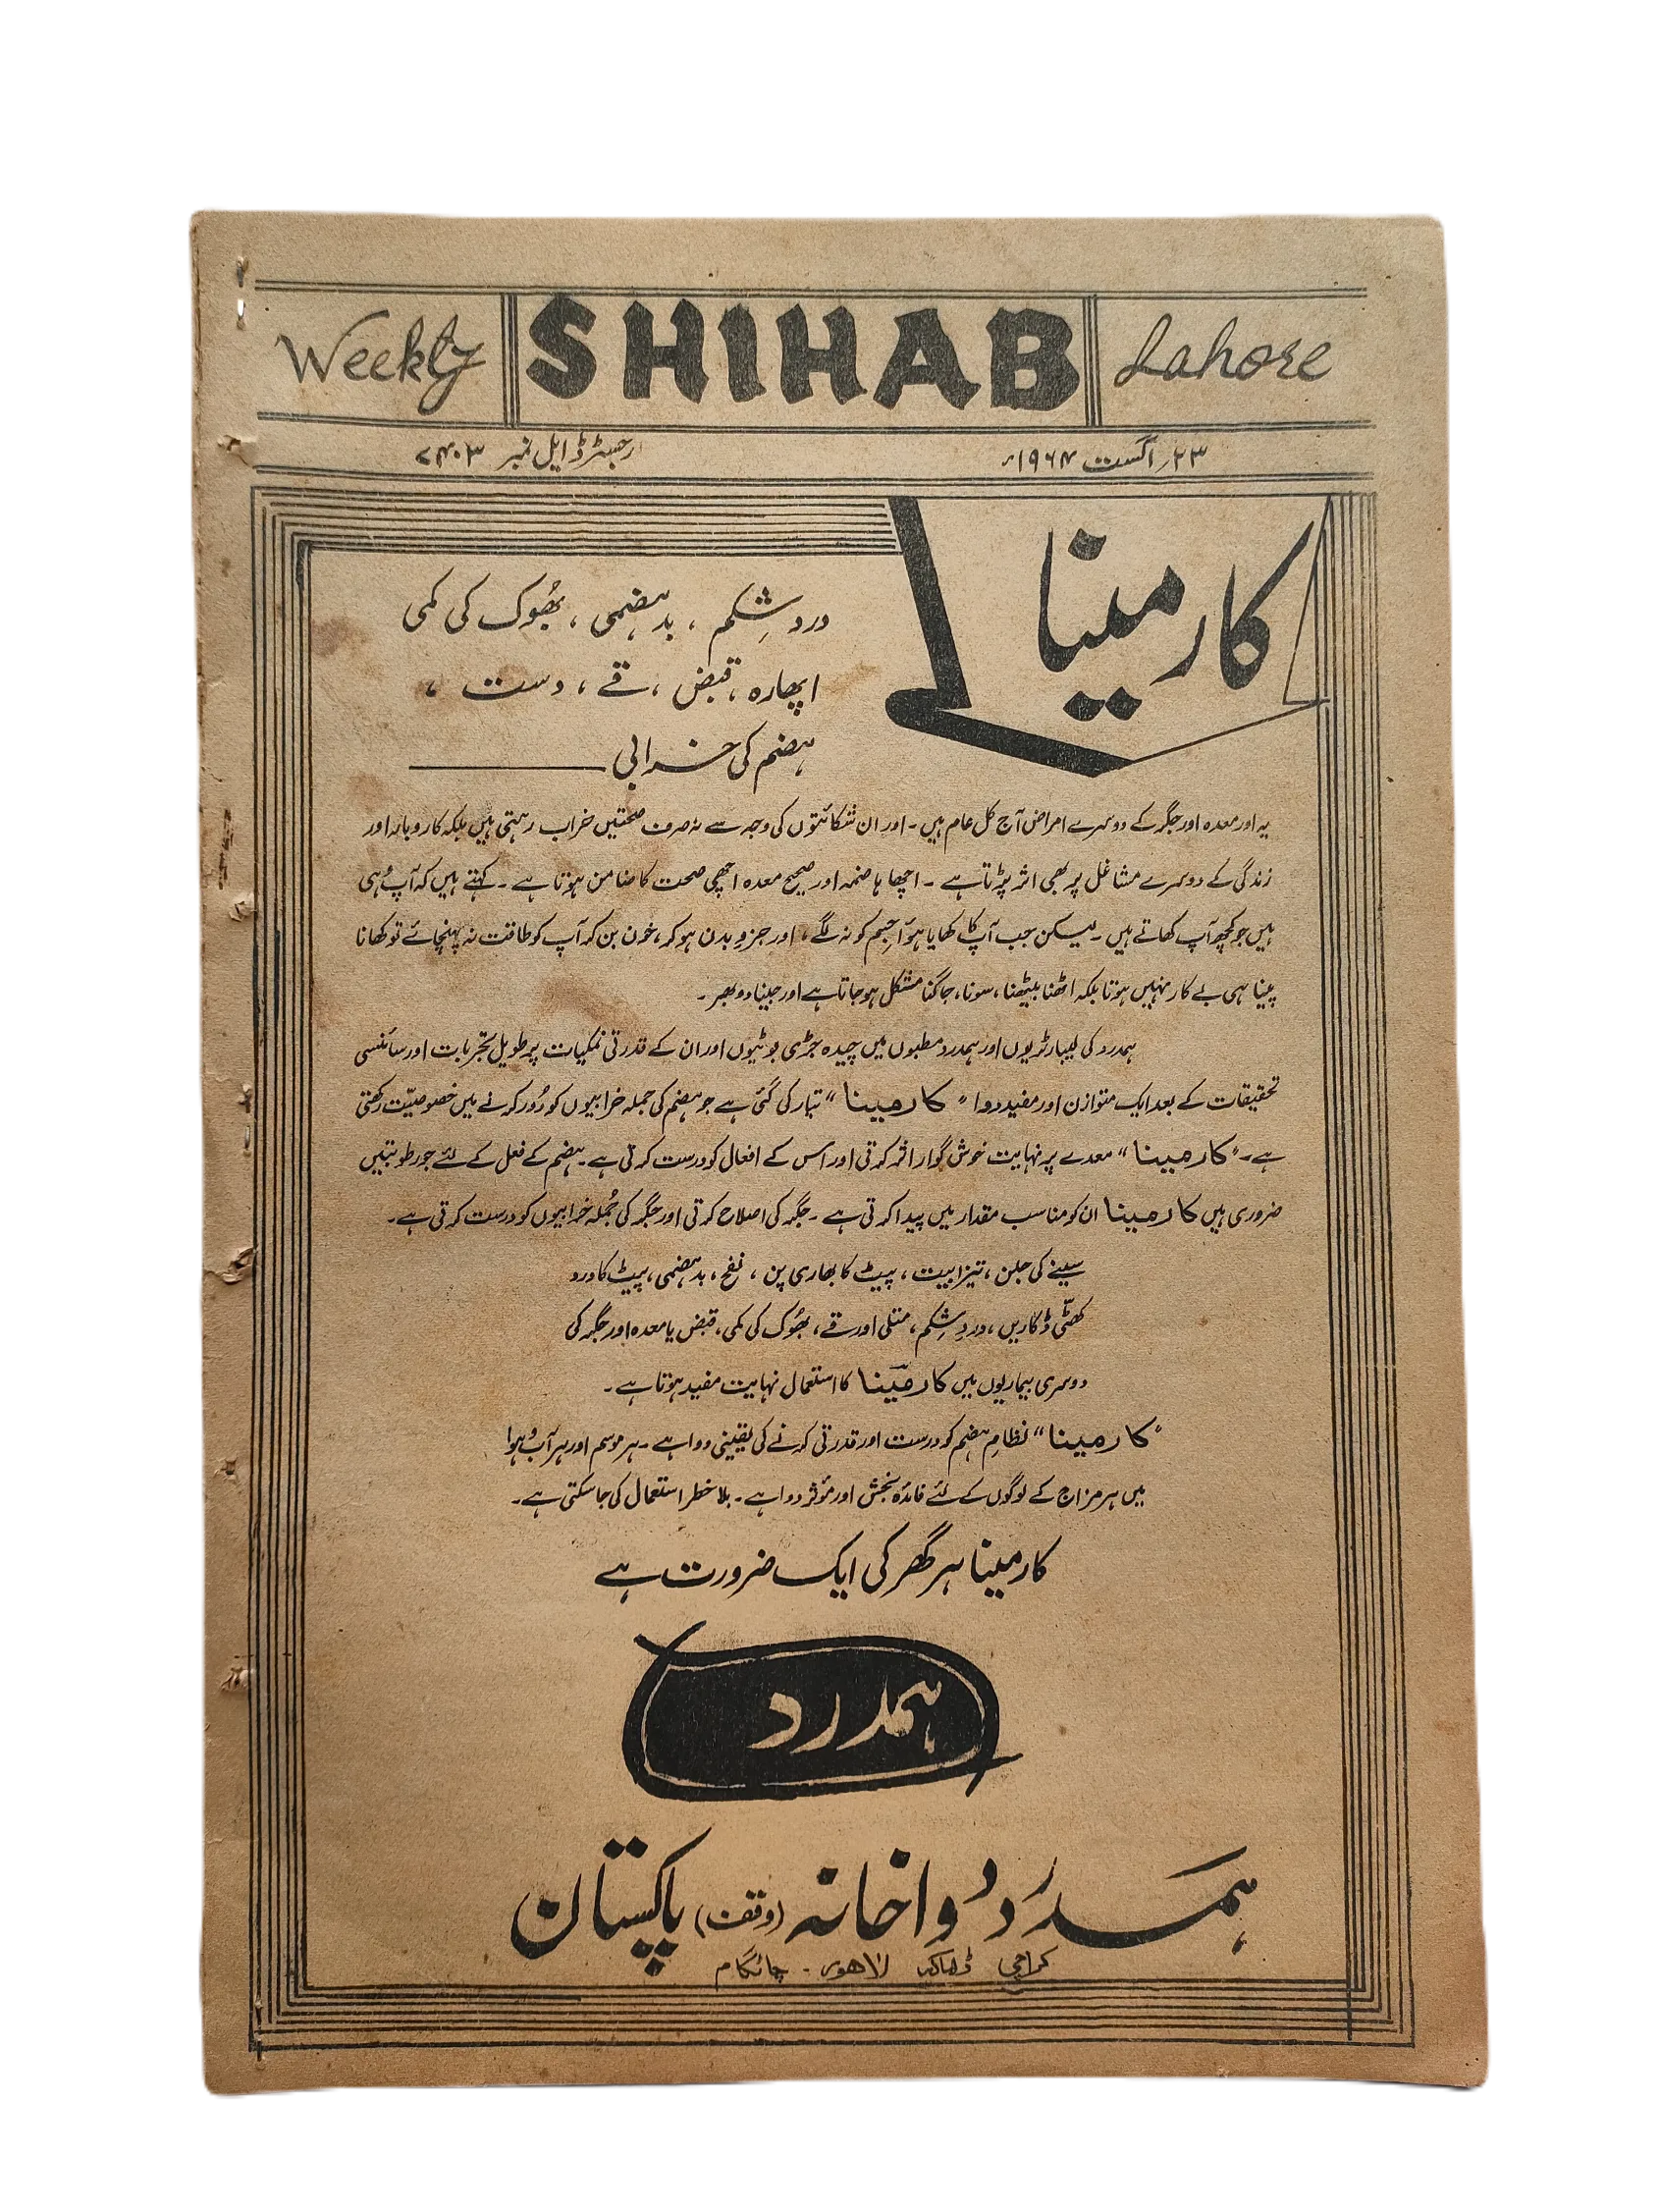 Weekly SHIHAB Lahore
۲۳؍ اگست ۱۹۶۴ء رجسٹرڈ ایل نمبر ۷۴۰۳
کارمینا
دردِ شِکم ، بدہضمی ، بھُوک کی کمی
اپھارہ ، قبض ، قے ، دست ،
ہضم کی خرابی
یہ اور معدہ اور جگر کے دوسرے امراض آج کل عام ہیں۔ اور ان شکائتوں کی وجہ سے نہ صرف صحتیں خراب رہتی ہیں بلکہ کاروبار اور
زندگی کے دوسرے مشاغل پر بھی اثر پڑتا ہے ۔ اچھا ہاضمہ اور صحیح معدہ اچھی صحت کا ضامن ہوتا ہے ۔ کہتے ہیں کہ آپ وُہی
ہیں جو کچھ آپ کھاتے ہیں ۔ لیکن جب آپ کا کھایا ہوُا جسم کو نہ لگے ، اور جزوِ بدن ہو کر ، خون بن کر آپ کو طاقت نہ پہنچائے تو کھانا
پینا ہی بے کار نہیں ہوتا بلکہ اٹھنا بیٹھنا ، سونا ، جاگنا مشکل ہو جاتا ہے اور جینا دوبھر ۔
ہمدرد کی لیبارٹریوں اور ہمدرد مطبوں میں چیدہ جڑی بوٹیوں اور ان کے قدرتی نمکیات پر طویل تجربات اور سائنسی
تحقیقات کے بعد ایک متوازن اور مفید دوا " کارمینا " تیار کی گئی ہے جو ہضم کی جملہ خرابیوں کو دُور کرنے میں خصوصیّت رکھتی
ہے ۔ " کارمینا " معدے پر نہایت خوش گوار اثر کرتی اور اس کے افعال کو درست کرتی ہے ۔ ہضم کے فعل کے لئے جو رطوبتیں
ضروری ہیں کارمینا ان کو مناسب مقدار میں پیدا کرتی ہے ۔ جگر کی اصلاح کرتی اور جگر کی جُملہ خرابیوں کو درست کرتی ہے ۔
سینے کی جلن ، تیزابیت ، پیٹ کا بھاری پن ، نفخ ، بدہضمی ، پیٹ کا درد
کھٹّی ڈکاریں ، دردِ شِکم ، متلی اور قے ، بھُوک کی کمی ، قبض یا معدہ اور جگر کی
دوسری بیماریوں میں کارمینا کا استعمال نہایت مفید ہوتا ہے ۔
" کارمینا " نظامِ ہضم کو درست اور قدرتی کرنے کی یقینی دوا ہے ۔ ہر موسم اور ہر آب و ہوا
میں ہر مزاج کے لوگوں کے لئے فائدہ بخش اور موٗثر دوا ہے ۔ بلا خطر استعمال کی جا سکتی ہے ۔
کارمینا ہر گھر کی ایک ضرورت ہے
ہمدرد
ہمدرد دواخانہ (وقف) پاکستان
کراچی ڈھاکہ لاہور ۔ چاٹگام